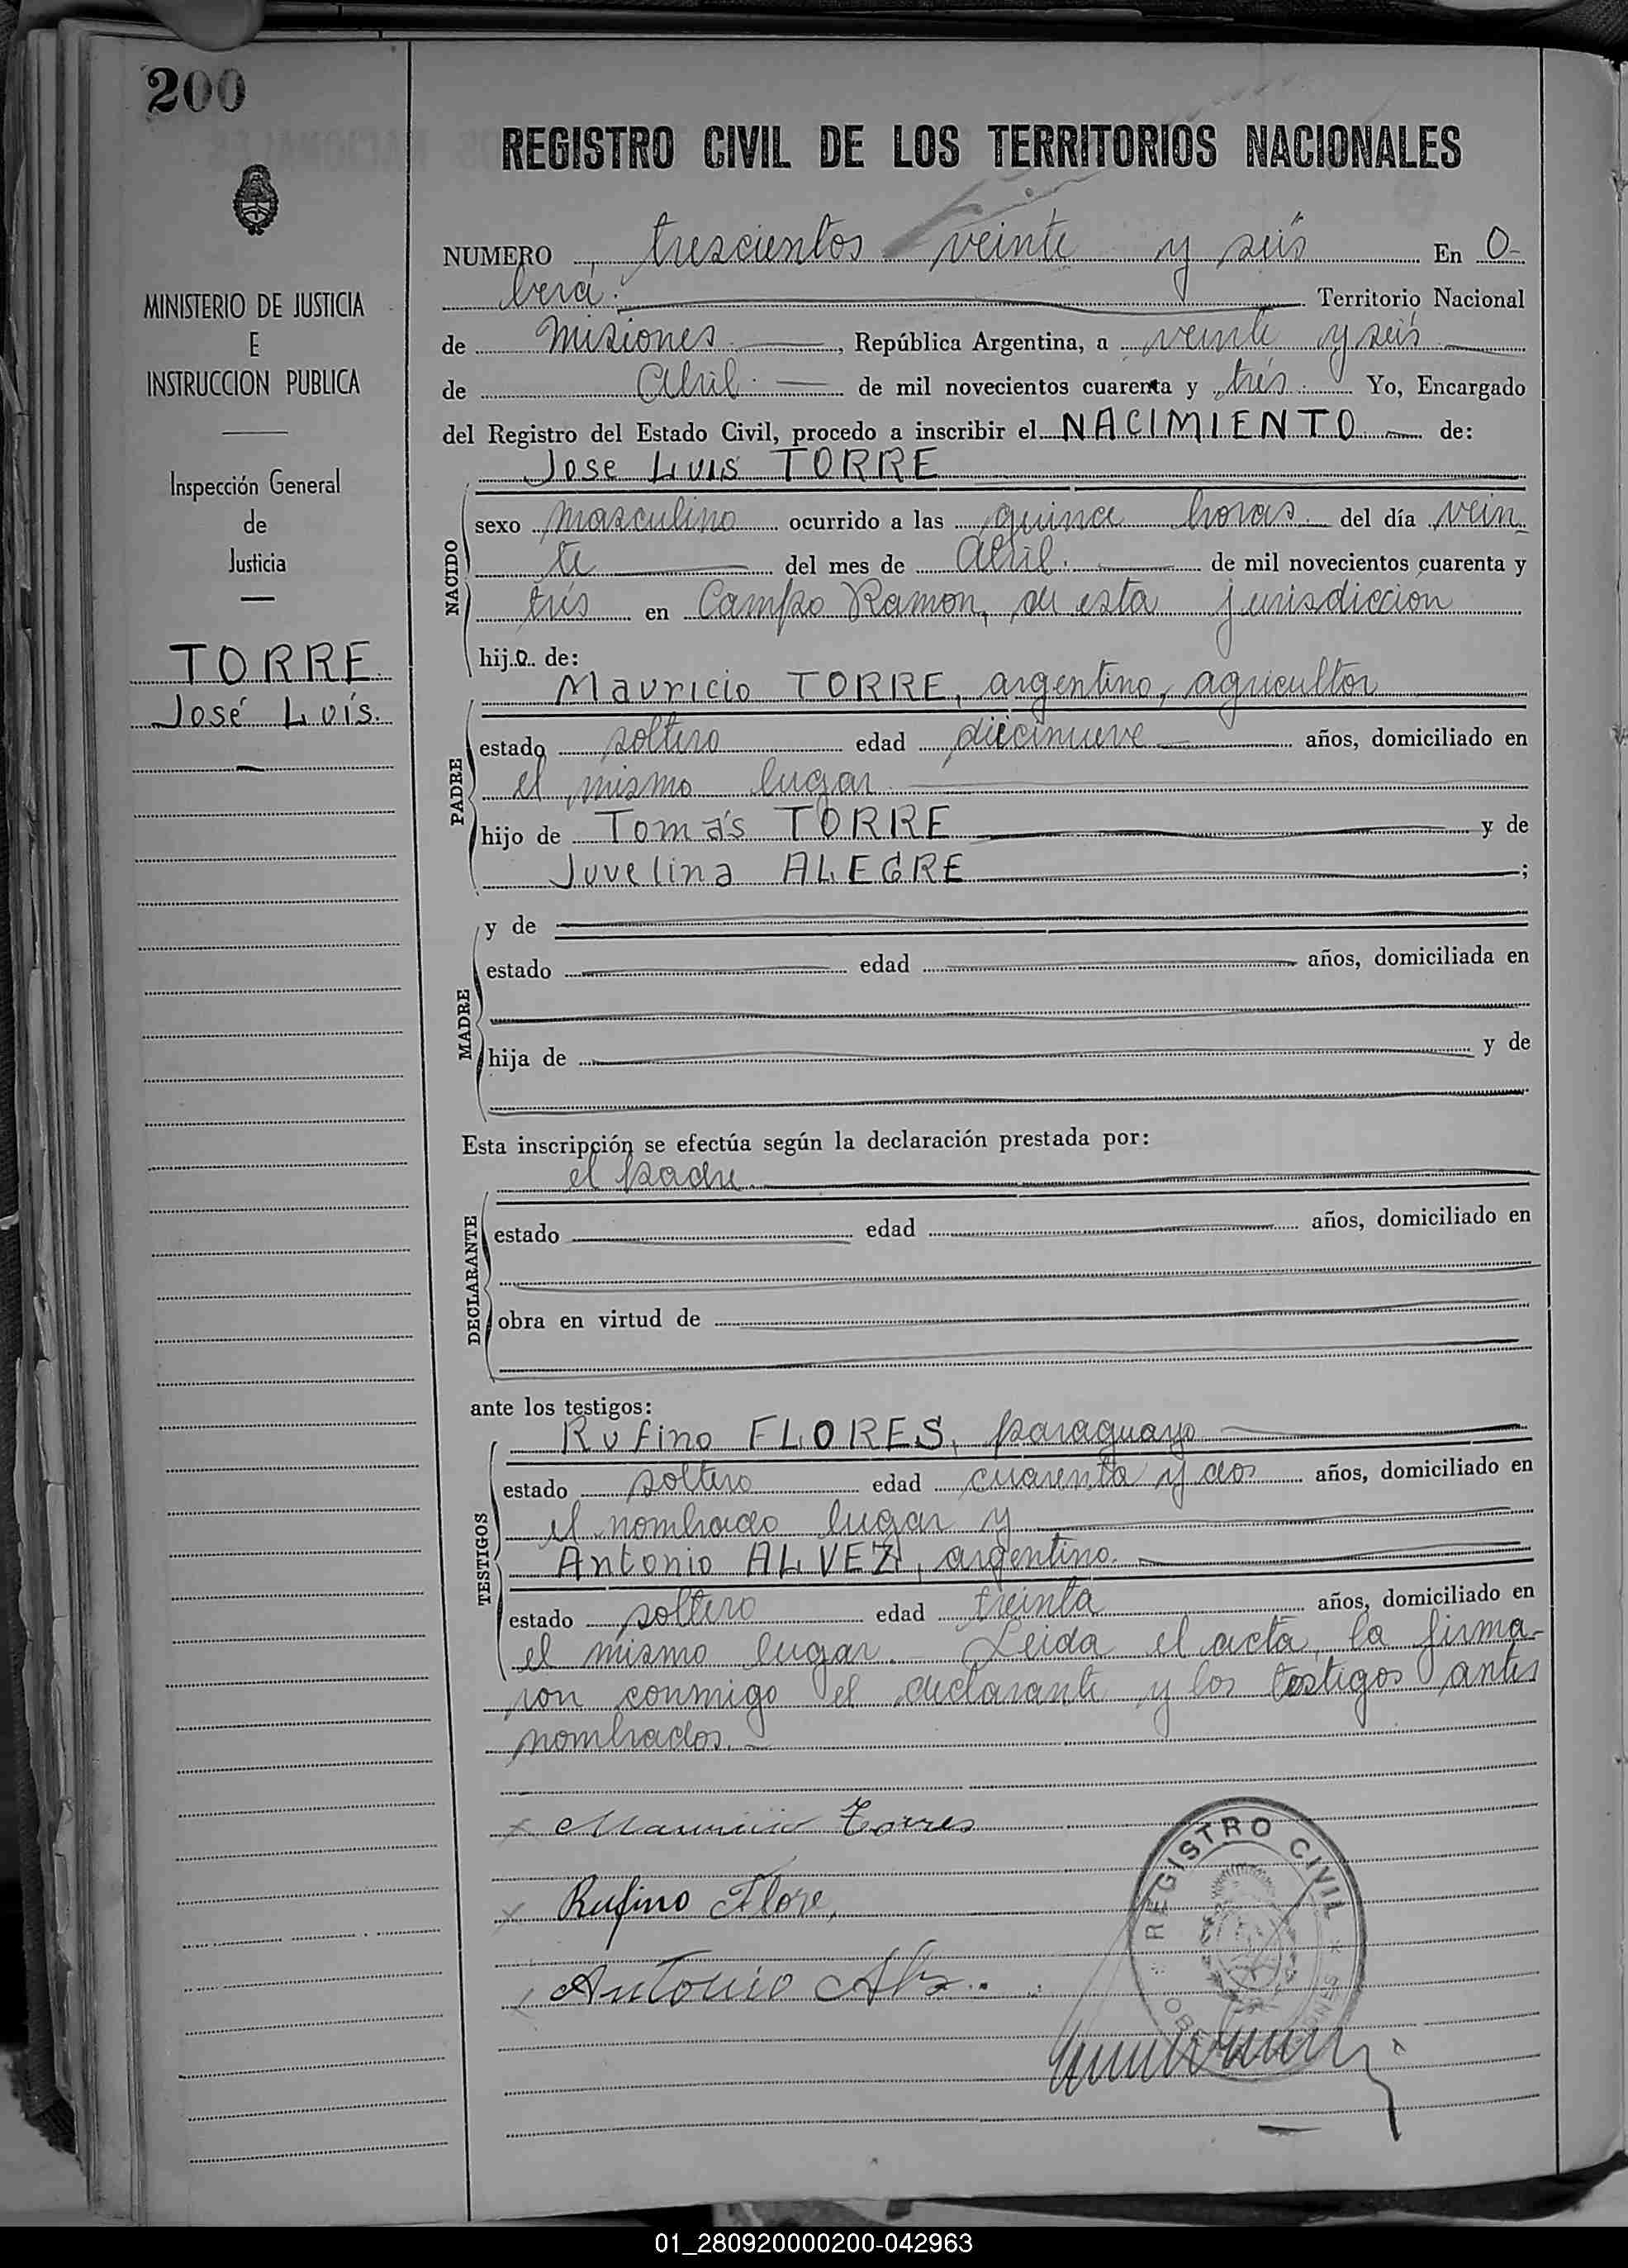 200
MINISTERIO DE JUSTICIA
E
INSTRUCCION PUBLICA
Inspección General
de
Justicia
TORRE
José Luís.
REGISTRO CIVIL DE LOS TERRITORIOS NACIONALES
NUMERO trescientos veinte y seis En O-
berá. Territorio Nacional
de Misiones, República Argentina, a veinte y seis
de Abril. de mil novecientos cuarenta y trés. Yo, Encargado
del Registro del Estado Civil, procedo a inscribir el NACIMIENTO de:
Jose Luis TORRE
NACIDO
sexo masculino ocurrido a las quince horas. del día vein-
te del mes de Abril. de mil novecientos cuarenta y
trés en Campo Ramon, de esta jurisdiccion
hijo de:
Mauricio TORRE, argentino, agricultor
PADRE
estado soltero edad diecinueve años, domiciliado en
el mismo lugar
hijo de Tomás TORRE y de
Juvelina ALEGRE;
MADRE
y de
estado edad años, domiciliada en
hija de y de
Esta inscripción se efectúa según la declaración prestada por:
el padre.
DECLARANTE
estado edad años, domiciliado en
obra en virtud de
ante los testigos:
TESTIGOS
Rufino FLORES, paraguayo
estado soltero edad cuarenta y dos años, domiciliado en
el nombrado lugar y
Antonio ALVEZ, argentino.
estado soltero edad treinta años, domiciliado en
el mismo lugar. Leida el acta, la firma-
ron conmigo el declarante y los testigos antes
nombrados.
x Mauricio Torres
x Rufino Flore,
x Antonio
REGISTRO CIVIL
01_280920000200-042963